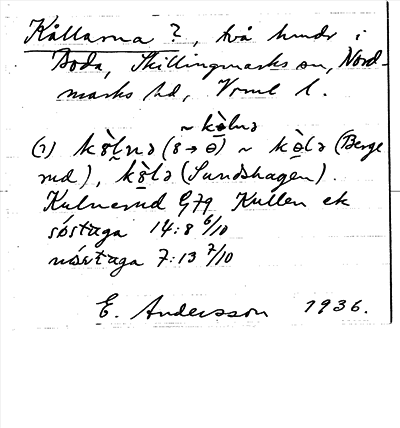 Kållarna ?, två hmdr i
Boda, Skillingmarks sn, Nord-
marks hd, Vrml l.
~ kò̱lnə
(1) kò̱lnə (8→ɵ) ~ kò̱lə (Berge
rud), kò̱lə (Sundshagen).
Kulnerud G79 Kullen ek
søstaga 14:8 6/10
nøstaga 7:13 7/10
E. Andersson 1936.